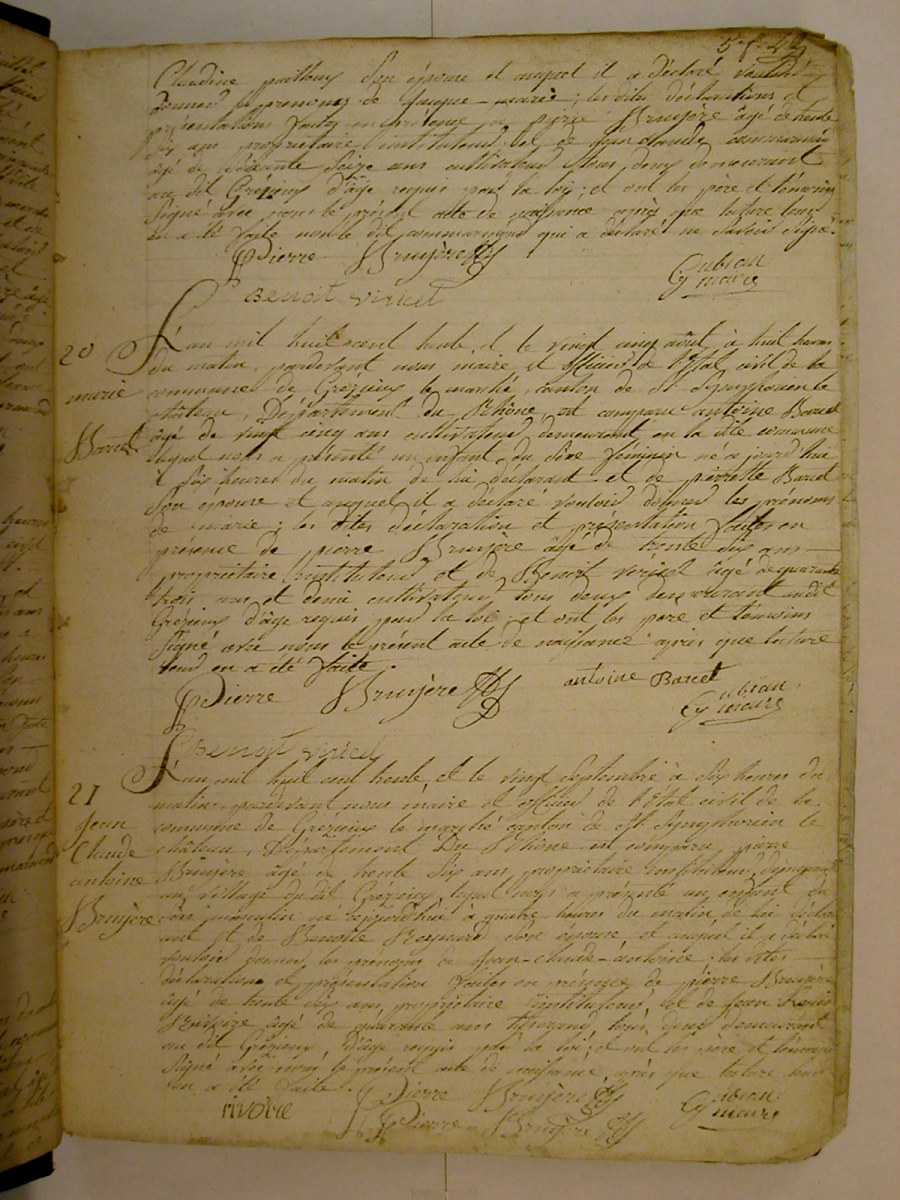 Claudine son épouse et auquel il a déclaré vouloir
donner les prénoms de marie ; les dites déclarations et
présentations faites en présence de pierre Bruyère âgé de trente
six ans propriétaire instituteur, et de jean claude
âgé de soixante seize ans cultivateur tous deux demeurant
au dit Grézieux d'âge requis par la loi ; et ont les père et témoins
signé avec nous le présent acte de naissance après que lecture leur
en a été faite non le dit qui a déclaré ne savoir signé.
Pierre Bruyère
Gubian
maire
Benoit viricel
20
marie
Barcet
L'an mil huit cent trente, et le vingt cinq août, à huit heures
du matin, pardevant nous maire et officier de l'état civil de la
commune de Grézieux le marché, canton de St Symphorien le
château, Département du Rhône est comparu antoine Barcet
âgé de vingt cinq ans cultivateur demeurant en la dite commune
lequel nous a présenté un enfant du sexe féminin né a jourd'hui
à six heures du matin de lui déclarant et de pierrette Barcet
son épouse et auquel il a déclaré vouloir donner les prénoms
de marie ; les dites déclaration et présentation faites en
présence de pierre Bruyère âgé de trente six ans
propriétaire instituteur et de Benoit viricel âgé de quarante
trois ans et demi cultivateur tous deux demeurant au dit
Grézieux d'âge requis par la loi et ont les père et témoins
signé avec nous le présent acte de naissance après que lecture
leur en a été faite.
Pierre Bruyère
antoine Barcet
Gubian
maire
Benoit viricel
21
jean
Claude
antoine
Bruyère
L'an mil huit cent trente, et le vingt septembre à six heures du
matin, pardevant nous maire et officier de l'état civil de la
commune de Grézieux le marché canton de St Symphorien le
château, Département du Rhône est comparu pierre
Bruyère âgé de trente six ans, propriétaire instituteur, demeurant
au village du dit Grézieux lequel nous a présenté un enfant du
sexe masculin né aujourd'hui à quatre heures du matin de lui déclar
ant et de Benoite son épouse et auquel il a déclaré
vouloir donner les prénoms de jean-claude-antoine ; les dites
déclaration et présentation faites en présence de pierre Bruyère
âgé de trente six ans, propriétaire instituteur, et de jean
âgé de quarante ans tous deux demeurant
au dit Grézieux, d'âge requis par la loi ; et ont les père et témoins
signé avec nous le présent acte de naissance, après que lecture leur
en a été faite.
rivoire
Pierre Bruyère
Gubian
maire
Pierre Bruyère